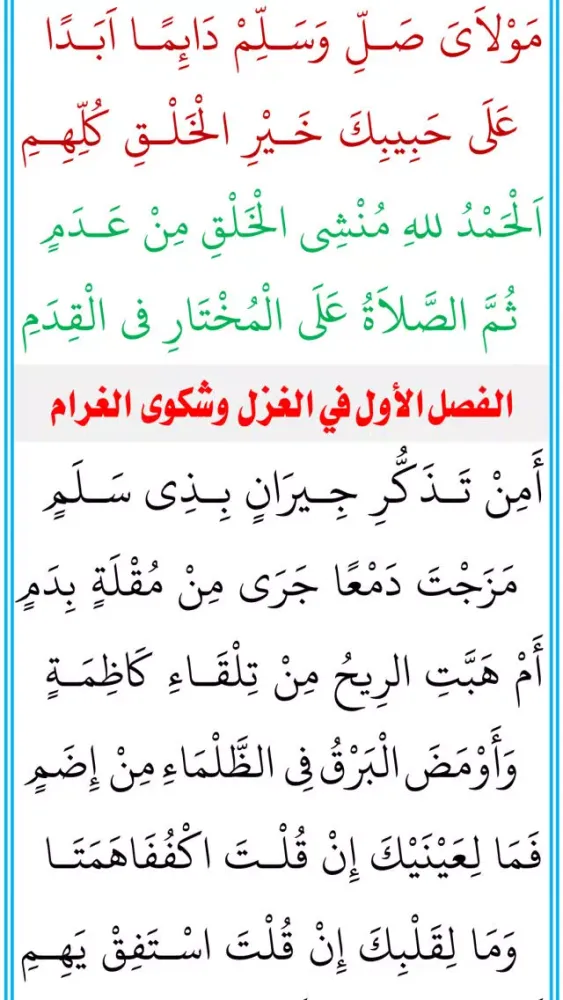 مَوْلاَىَ صَلِّ وَسَلِّمْ دَائِمًا اَبَدًا
عَلَى حَبِيبِكَ خَيْرِ الْخَلْقِ كُلِّهِمِ
اَلْحَمْدُ للهِ مُنْشِى الْخَلْقِ مِنْ عَدَمٍ
ثُمَّ الصَّلاَةُ عَلَى الْمُخْتَارِ فِى الْقِدَمِ
الفصل الأول في الغزل وشكوى الغرام
أَمِنْ تَذَكُّرِ جِيرَانٍ بِذِى سَلَمٍ
مَزَجْتَ دَمْعًا جَرَى مِنْ مُقْلَةٍ بِدَمٍ
أَمْ هَبَّتِ الرِيحُ مِنْ تِلْقَاءِ كَاظِمَةٍ
وَأَوْمَضَ الْبَرْقُ فِى الظَّلْمَاءِ مِنْ إِضَمٍ
فَمَا لِعَيْنَيْكَ إِنْ قُلْتَ اكْفُفَاهَمَتَا
وَمَا لِقَلْبِكَ إِنْ قُلْتَ اسْتَفِقْ يَهِمِ